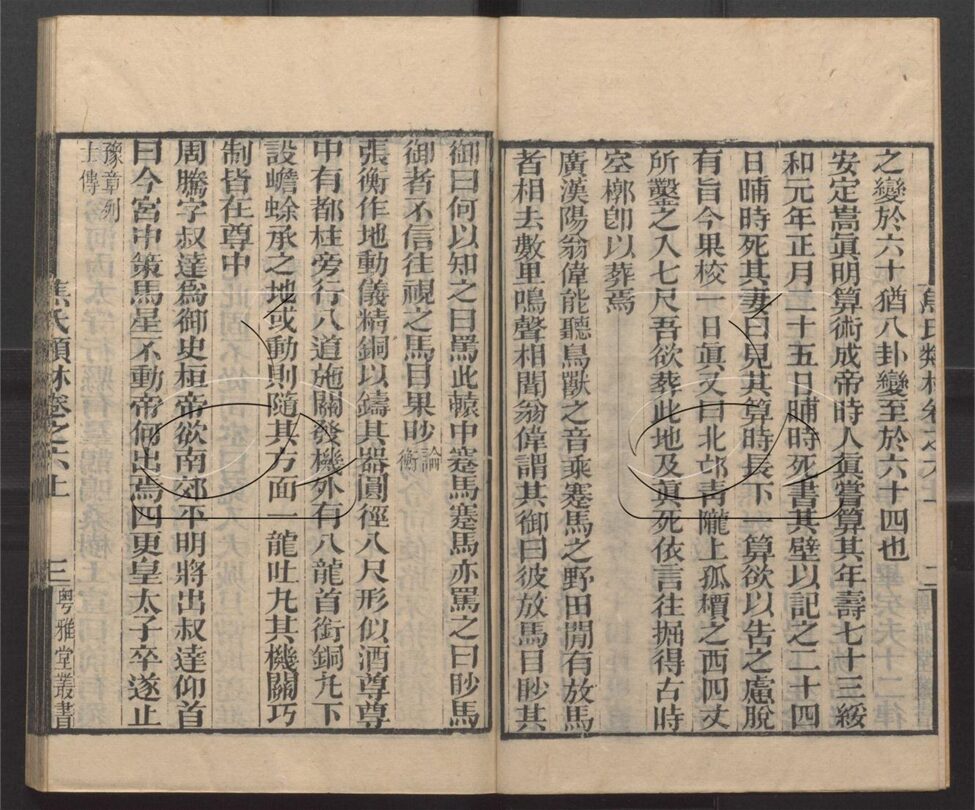 之變於六十猶八卦變至於六十四也
安定嵩眞明算術成帝時人眞嘗算其年壽七十三綏
和元年正月二十五日晡時死書其壁以記之二十四
日晡時死其妻曰見其算時長下一算欲以告之慮脫
有旨今果校一日眞又曰北邙靑隴上孤檟之西四丈
所鑿之入七尺吾欲葬此地及眞死依言往掘得古時
空槨卽以葬焉
廣漢陽翁偉能聽鳥獸之音乘蹇馬之野田閒有放馬
者相去數里鳴聲相聞翁偉謂其御曰彼放馬目眇其
御曰何以知之曰罵此轅中蹇馬蹇馬亦罵之曰眇馬
御者不信往視之馬目果眇論衡
張衡作地動儀精銅以鑄其器圓徑八尺形似酒尊尊
中有都柱旁行八道施關發機外有八龍首銜銅丸下
設蟾蜍承之地或動則隨其方面一龍吐丸其機關巧
制皆在尊中
周騰字叔達爲御史桓帝欲南郊平明將出叔達仰首
曰今宮中策馬星不動帝何出焉四更皇太子卒遂止
豫章列士傳
焦氏類林卷之六上 三 粵雅堂叢書